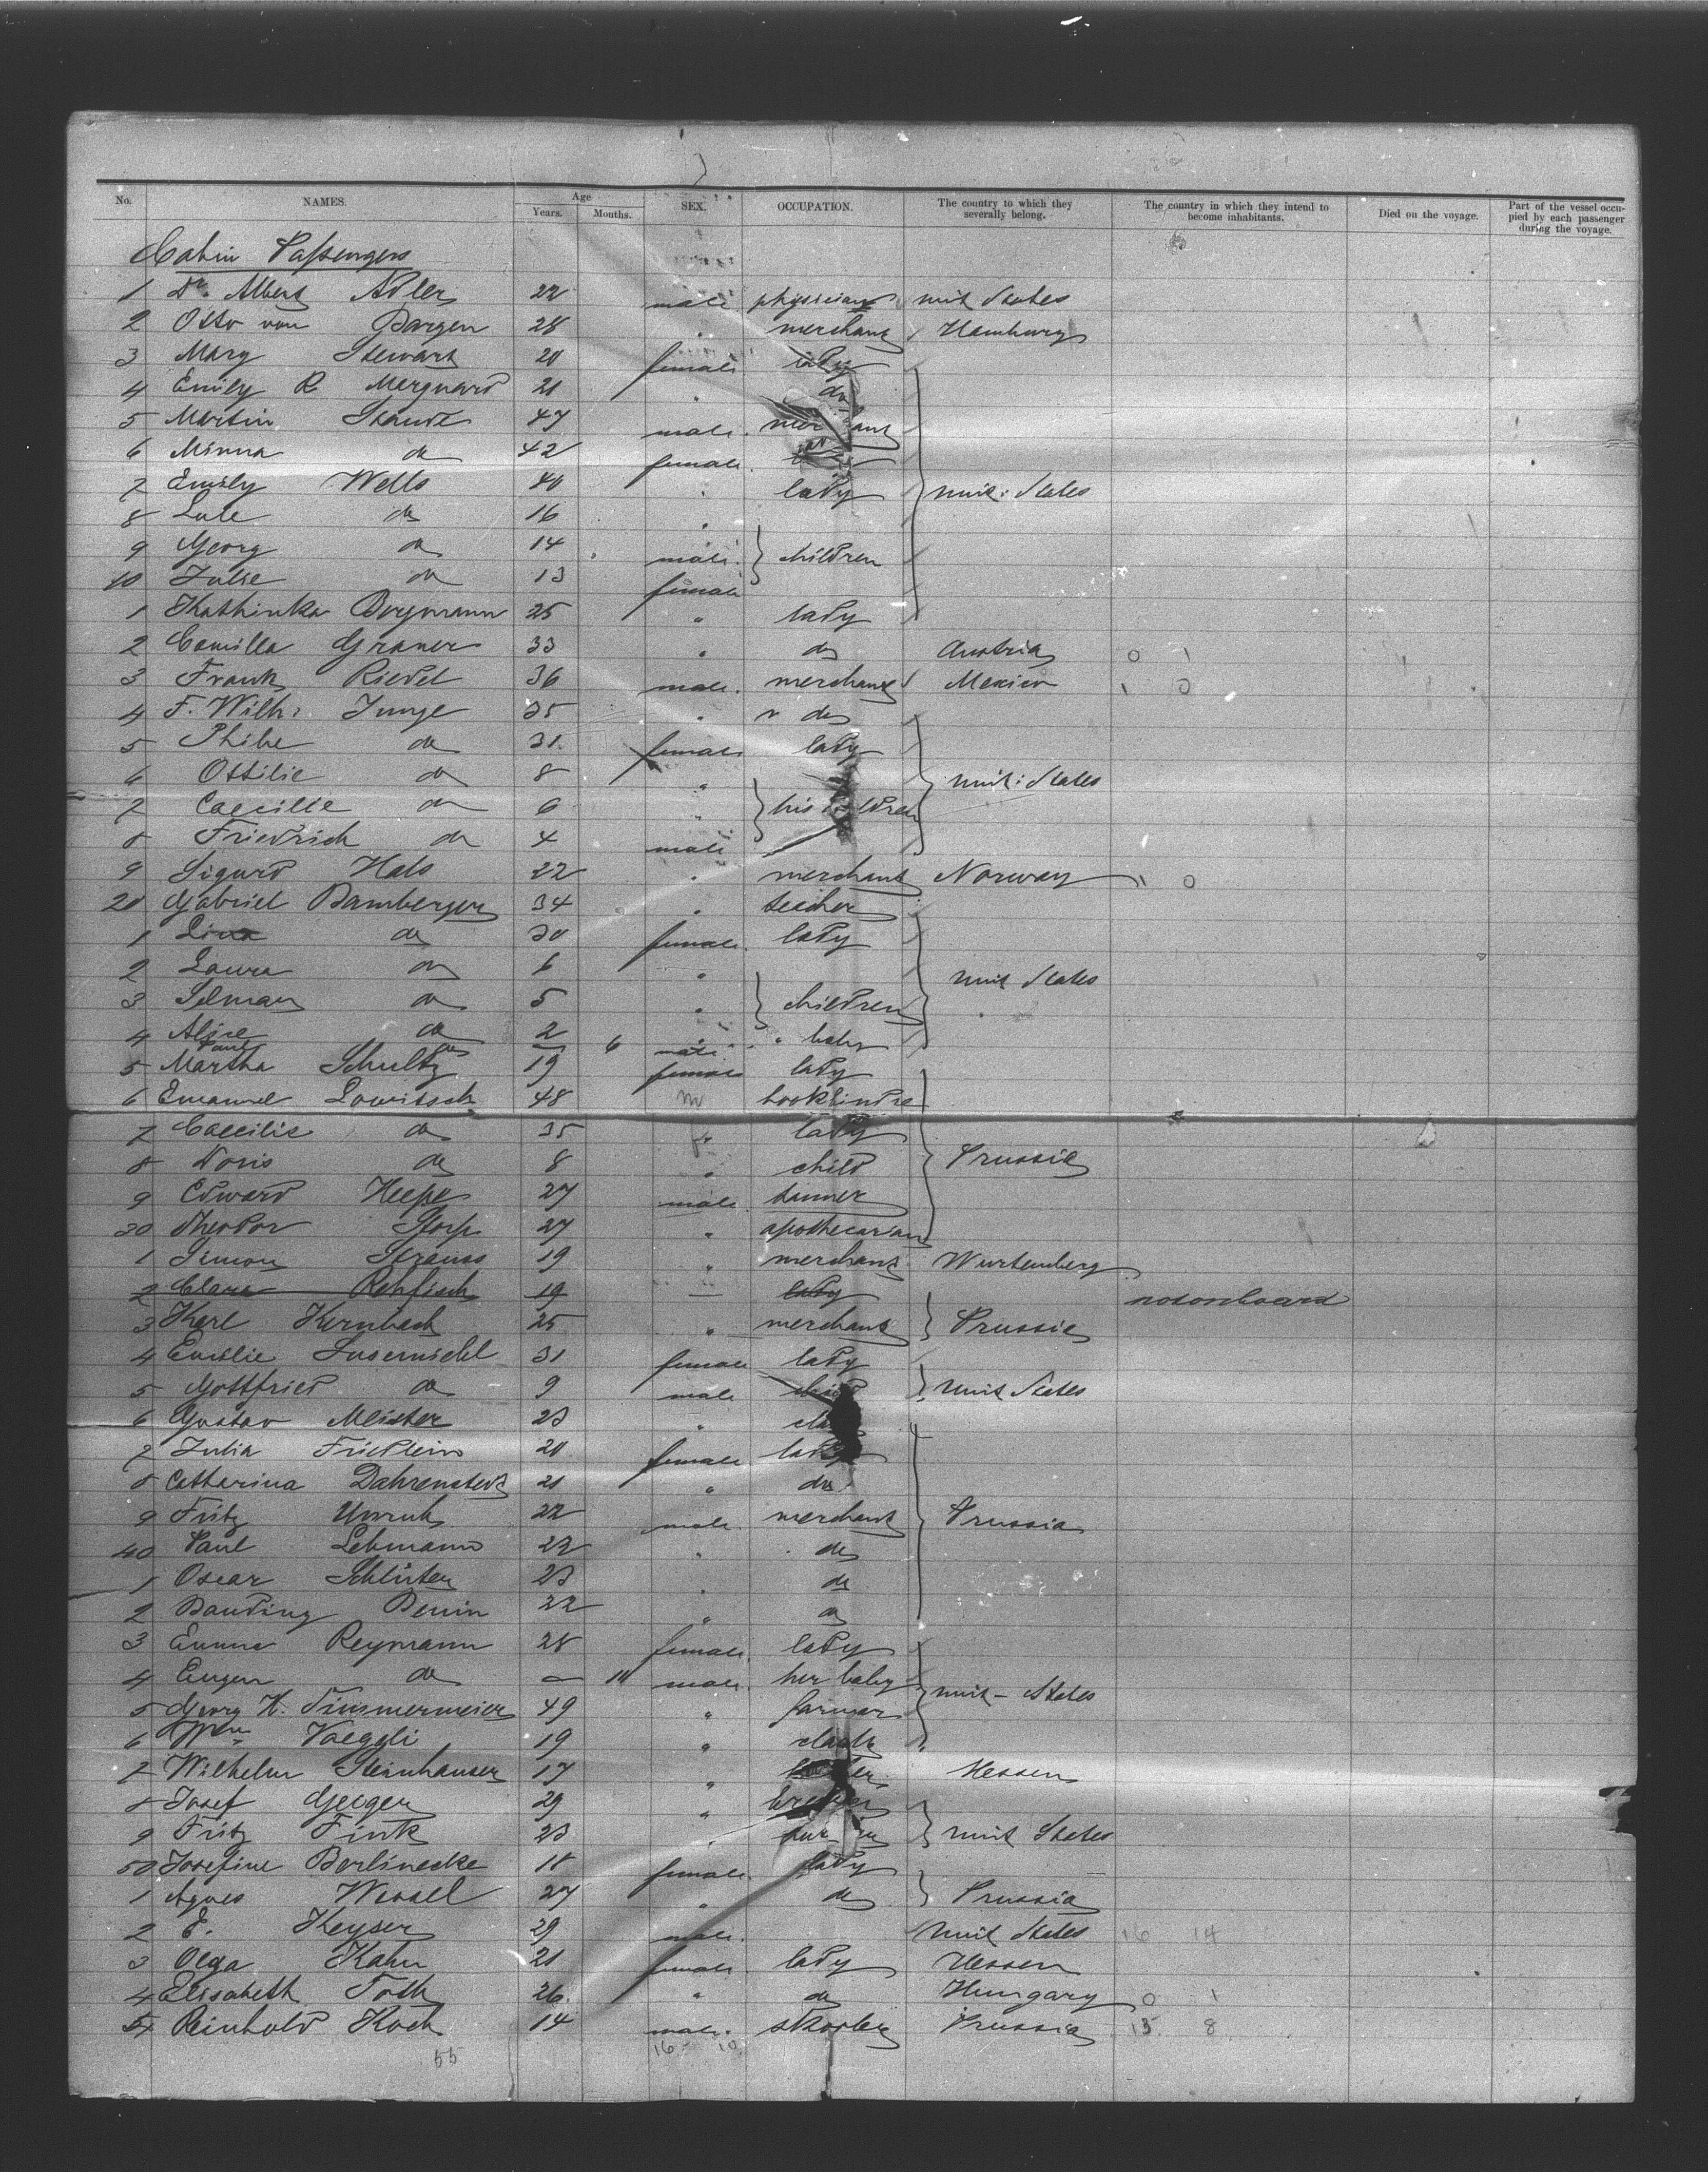 No. NAMES. Age Years. Months. SEX. OCCUPATION. The country to which they severally belong. The country in which they intend to become inhabitants. Died on the voyage. Part of the vessel occupied by each passenger during the voyage.
Cabin Passengers
1 Dr. Albert Adler 22 male physician unit States
2 Otto von Bargen 28 " merchant Hamburg
3 Mary Stewart 20 female lady
4 Emily R Marquard 21 " do
5 Martin Staude 47 male merchant
6 Minna do 42 female
7 Emily Wells 40 " lady unit: States
8 Lule do 16 "
9 Georg do 14 male children
10 Julie do 13 female
1 Kathinka Bergmann 25 " lady
2 Camilla Graner 33 " do Austria 0 1
3 Frank Riedel 36 male merchant Mexico 1 0
4 F. Wilh. Junge 35 " do
5 Phibe do 31 female lady
6 Ottilie do 8 " unit: States
7 Caecilie do 6 " his children
8 Friedrich do 4 male
9 Sigurd Hals 22 " merchant Norway 1 0
20 Gabriel Bamberger 34 " teacher
1 Lina do 30 female lady
2 Laura do 6 " unit States
3 Selmar do 5 " children
4 Alice do 2 " baby
Paul do 6 male
5 Martha Schultz 19 female lady
6 Emanuel Lowitsch 48 m bookbinder
7 Caecilie do 35 f lady
8 Doris do 8 " child Prussia
9 Edward Heepe 27 male tanner
30 Theodor Storp 27 " apothecarian
1 Simon Strauss 19 " merchant Wurtemberg
2 Clara Rehfisch 19 lady not on board
3 Karl Kernbach 25 " merchant Prussia
4 Emilie Lusernichl 31 female lady
5 Gottfried do 9 male child unit States
6 Gustav Meister 23 "
7 Julia Friedlein 20 female lady
8 Catharina Dahrenstedt 21 " do
9 Fritz Unruh 22 male merchant Prussia
40 Paul Lehmann 22 " do
1 Oscar Schlüter 23 " do
2 Benin 22 " do
3 Emma Reymann 28 female lady
4 Eugen do — male her baby unit- States
5 Georg H. Timmermeier 49 " farmer
6 Wm Vaegeli 19 " clerk
7 Wilhelm Steinhauser 17 " Hessen
8 Josef Geiger 29 " brewer
9 Fritz Fink 23 " unit States
50 Josefine Berlinecke 18 female lady
1 Agnes Wessel 27 " do Prussia
2 E. Keyser 29 male unit States 16 14
3 Olga Kahn 21 female lady Hessen
4 Elisabeth Toth 26 " do Hungary 0 1
5 Reinhold Koch 14 male Prussia 15 8
55 16 10